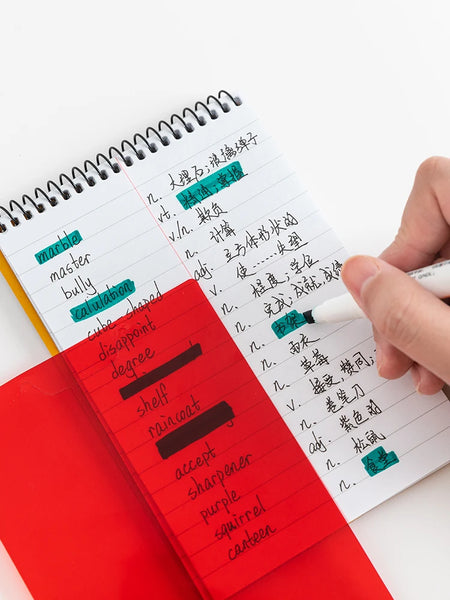 marble
master
bully
calulation
cube-shaped
disappoint
degree
shelf
raincoat
accept
sharpener
purple
squirrel
canteen
n. 大理石；玻璃弹子
vt. 精通；掌握
v/n. 欺负
n. 计算
adj. 立方体形状的
v. 使……失望
n. 程度；学位
n. 完成；成就；成绩
n. 书架
n. 雨衣
n. 草莓
v. 接受；赞同；
n. 卷笔刀
adj. 紫色的
n. 松鼠
n. 食堂